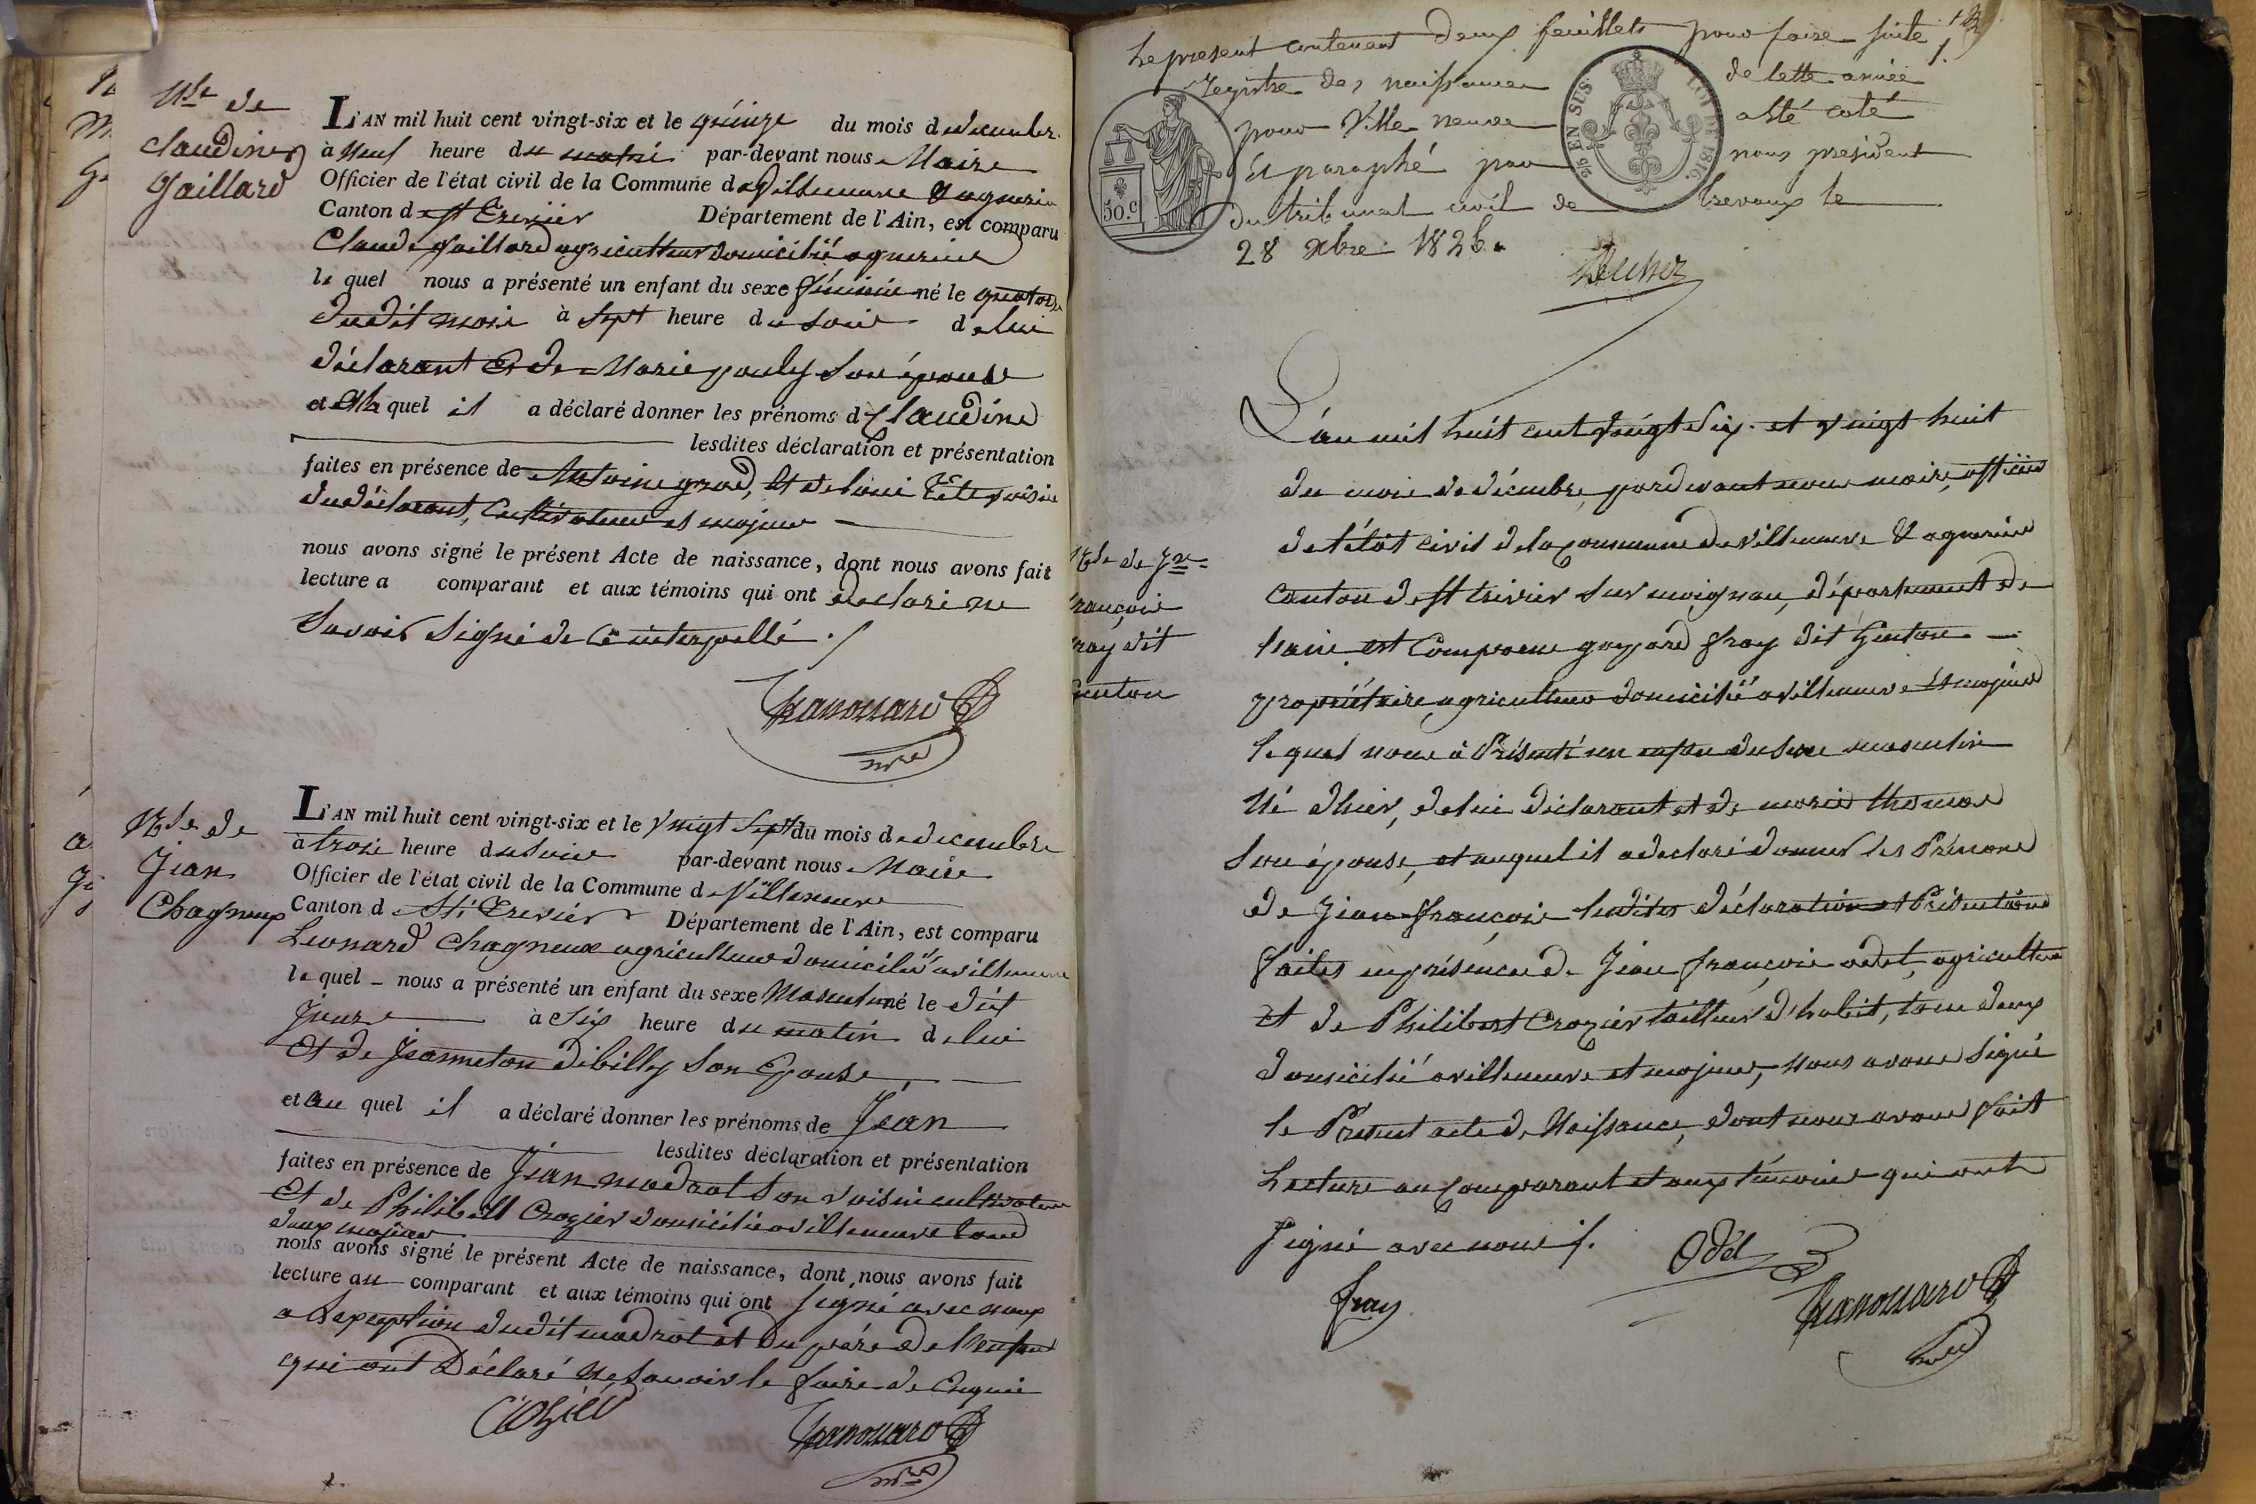 Nce de
Claudine
Gaillard
L'AN mil huit cent vingt-six et le quinze du mois de décembre
à neuf heure du matin par-devant nous Maire
Officier de l'état civil de la Commune de Villeneuve & agnerin
Canton de St Trivier Département de l'Ain, est comparu
Claude gaillard agriculteur domicilié agnerin
le quel nous a présenté un enfant du sexe féminin né le quatorze
dudit mois à Sept heure du soir de lui
déclarant Et de Marie pouly Son épouse
et quel il a déclaré donner les prénoms de Claudine
lesdites déclaration et présentation
faites en présence de Antoine grad, Et de voisin
du déclarant, Cultivateur et majeur
nous avons signé le présent Acte de naissance, dont nous avons fait
lecture a comparant et aux témoins qui ont declaré ne
Savoir Signé de ce interpellé ./
Nce de
Jean
Chagneux
L'AN mil huit cent vingt-six et le vingt Sept du mois de decembre
à trois heure du soir par-devant nous Maire
Officier de l'état civil de la Commune de Villeneuve
Canton de St Trivier Département de l'Ain, est comparu
Leonard Chagneux agriculteur domicilié a villeneuve
le quel nous a présenté un enfant du sexe Masculin né le dit
Jour à Six heure du matin de lui
Et de Jeanneton Debilly Son Epouse
et au quel il a déclaré donner les prénoms de Jean
lesdites déclaration et présentation
faites en présence de Jean modrat Son voisin cultivateur
Et de Philibert Crozier domicilié a villeneuve tous
deux majeur
nous avons signé le présent Acte de naissance, dont nous avons fait
lecture au comparant et aux témoins qui ont signé avec nous
a Lexeption dudit modrat et du pére de l'enfant
qui ont Déclaré Ne Savoir le faire de enquis
Crozier
Le present contenant deux feuillets pour faire suite
Registre des naissances de cette année
pour Ville neuve a été coté
Et paraphé par nous president
du tribunal civil de trevoux le
28 xbre 1826.
50.C
25 EN SUS. LOI DE 1816.
Nce de Jn
françois
fray dit
Genton
L'an mil huit cent vingt Six et vingt huit
du mois de décembre, pardevant nous maire, officier
de l'état civil de la Commune de villeneuve & agnerin
canton de St trivier Sur moignan, département de
l'ain est Comparu gaspard fray dit Genton
propriétaire agriculteur domicilié a villeneuve Et majeur
lequel nous à Présenté un enfan du sexe masculin
Né d'hier, de lui déclarant et de marie thomas
Son épouse, et auquel il a declaré donner les Prénoms
de Jean françois lesdites déclaration et Présentation
faites en présence de Jean françois odet, agriculteur
et de Philibert Crozier tailleur d'habit, tous deux
domicilié a villeneuve et majeur, nous avons Signé
le Présent acte de Naissance, dont nous avons fait
Lecture au Comparant et aux témoins qui ont
Signé avec nous ./.
Odet
fray